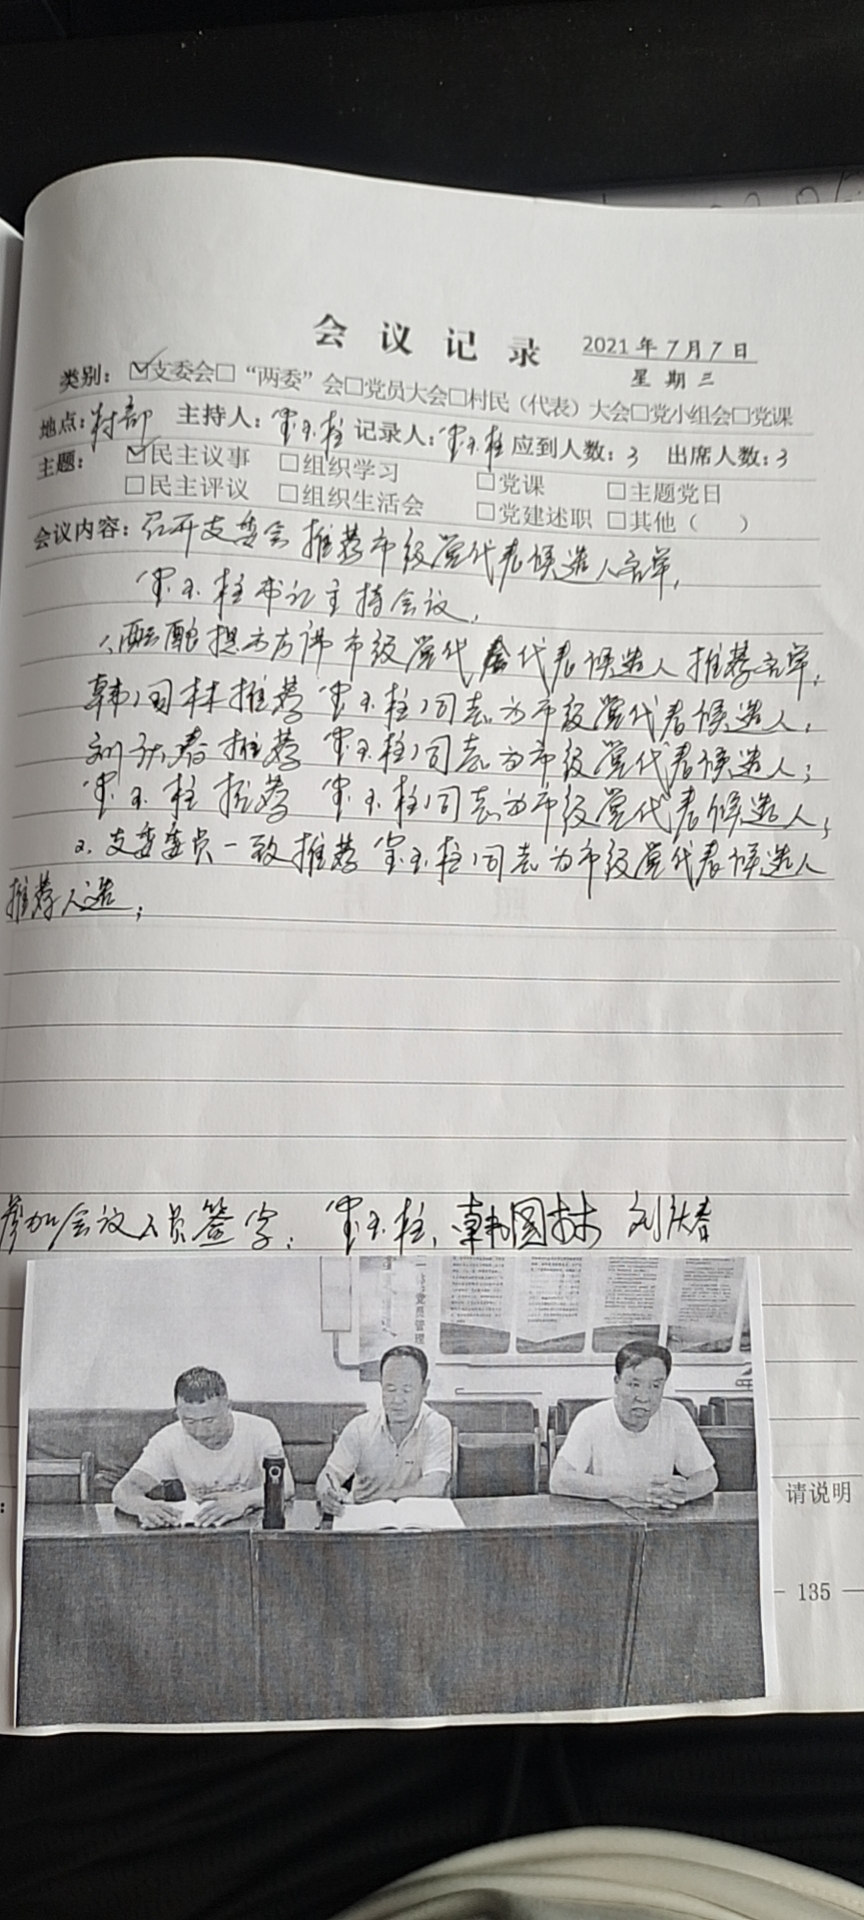 会议记录 2021年7月7日
星期三
类别：☑支委会□“两委”会□党员大会□村民（代表）大会□党小组会□党课
地点：村部 主持人：宝玉柱 记录人：宝玉柱 应到人数：3 出席人数：3
主题： ☑民主议事 □组织学习 □党课 □主题党日
□民主评议 □组织生活会 □党建述职 □其他（ ）
会议内容：召开支委会推荐市级党代表候选人名单，
宝玉柱书记主持会议，
1、酝酿提 市级党代 代表候选人推荐名单，
韩国林推荐宝玉柱同志为市级党代表候选人，
刘庆春推荐宝玉柱同志为市级党代表候选人；
宝玉柱推荐宝玉柱同志为市级党代表候选人，
2、支委委员一致推荐宝玉柱同志为市级党代表候选人
推荐人选；
参加会议人员签字：宝玉柱，韩国林 刘庆春
党员管理
请说明
135